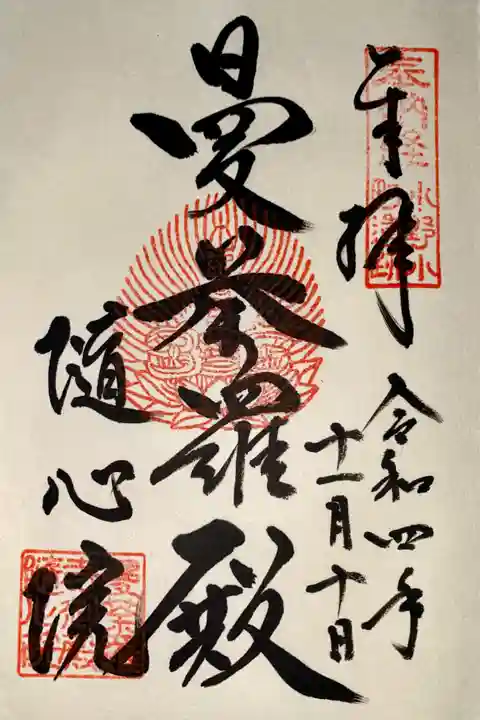 奉拝
令和四年
十一月十日
曼荼羅殿
随心院